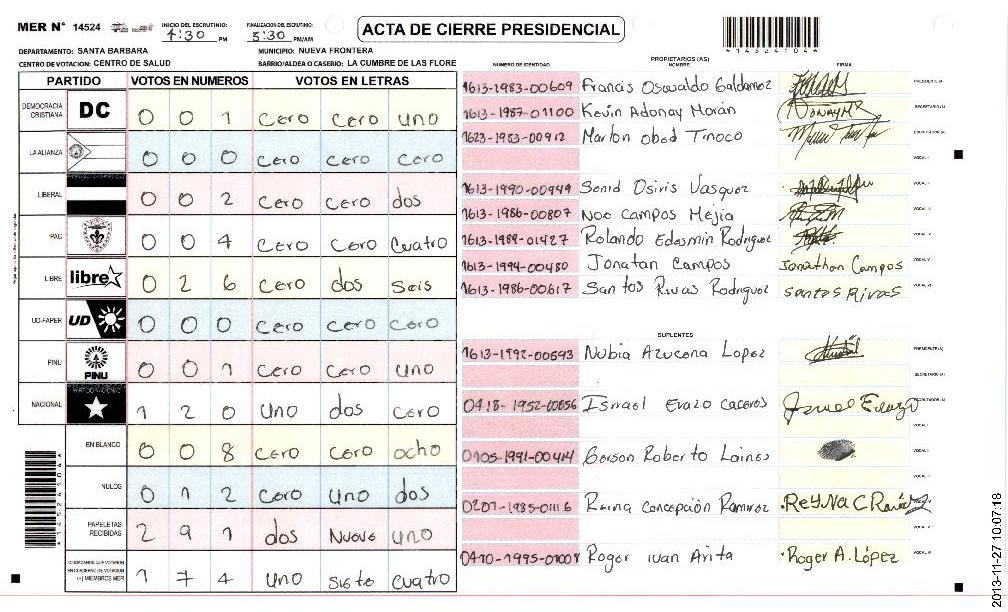 MER N° 14524
INICIO DEL ESCRUTINIO: 4:30 PM
FINALIZACION DEL ESCRUTINIO: 5:30 PM/AM
ACTA DE CIERRE PRESIDENCIAL
*14524104*
DEPARTAMENTO: SANTA BARBARA
MUNICIPIO: NUEVA FRONTERA
CENTRO DE VOTACION: CENTRO DE SALUD
BARRIO/ALDEA O CASERIO: LA CUMBRE DE LAS FLORE
PARTIDO VOTOS EN NUMEROS VOTOS EN LETRAS
DEMOCRACIA CRISTIANA DC 0 0 1 cero cero uno
LA ALIANZA 0 0 0 cero cero cero
LIBERAL 0 0 2 cero cero dos
PAC 0 0 4 cero cero cuatro
LIBRE libre 0 2 6 cero dos seis
UD-FAPER UD 0 0 0 cero cero cero
PINU PINU 0 0 1 cero cero uno
NACIONAL PARTIDO NACIONAL 1 2 0 uno dos cero
EN BLANCO 0 0 8 cero cero ocho
NULOS 0 1 2 cero uno dos
PAPELETAS RECIBIDAS 2 9 1 dos Nueve uno
CIUDADANOS QUE VOTARON EN CUADERNO DE VOTACION (+) MIEMBROS MER 1 7 4 uno siete cuatro
PROPIETARIOS (AS)
NUMERO DE IDENTIDAD NOMBRE FIRMA
1613-1983-00609 Francis Oswaldo Galdamez PRESIDENTE (A)
1613-1987-01100 Kevin Adonay Morán SECRETARIO (A)
1623-1983-00912 Marlon obed Tinoco ESCRUTADOR (A)
VOCAL I
1613-1990-00949 Senid Osiris Vasquez VOCAL II
1613-1986-00807 Noe Campos Mejia VOCAL III
1613-1989-01427 Rolando Edesmin Rodriguez VOCAL IV
1613-1994-00480 Jonatan Campos Jonathon Campos VOCAL V
1613-1986-00617 Santos Rivas Rodriguez santos Rivas VOCAL VI
SUPLENTES
1613-1992-00593 Nubia Azucena Lopez PRESIDENTE (A)
SECRETARIO (A)
0418-1952-00056 Ismael Erazo Caceres ESCRUTADOR (A)
VOCAL I
0105-1991-00414 Gerson Roberto Laines VOCAL II
VOCAL III
0207-1985-01116 Reina Concepción Ramirez VOCAL IV
VOCAL V
0410-1995-01008 Roger ivan Arita Roger A. López VOCAL VI
*14524104*
2013-11-27 10:07:18